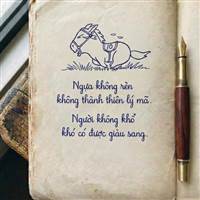 Ngựa không rèn
không thành thiên lý mã.
Người không khổ
khó có được giàu sang.